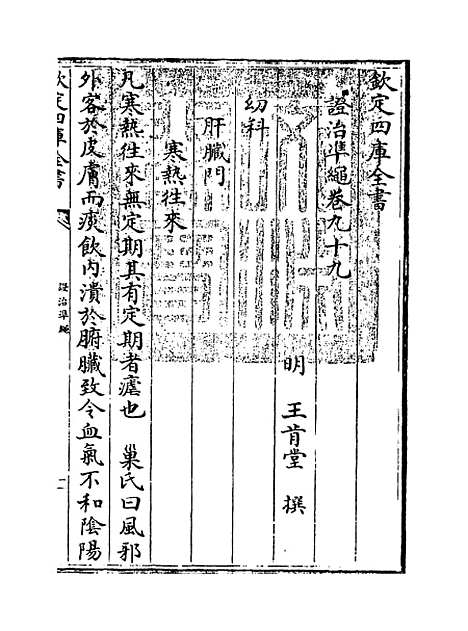 欽定四庫全書
證治準繩卷九十九
明 王肯堂 撰
幼科
肝臟門
寒熱徃來
凡寒熱徃來無定期其有定期者瘧也 巢氏曰風邪
外客於皮膚而痰飲内漬於腑臟致令血氣不和陰陽
欽定四庫全書
證治準繩